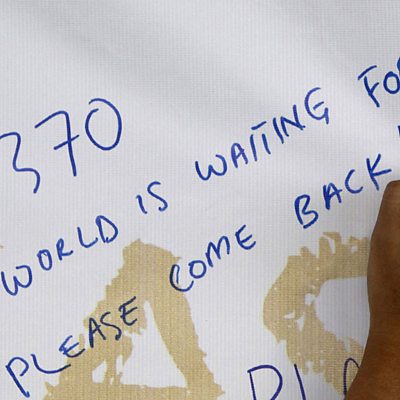 370
WORLD IS WAITING FO
PLEASE COME BACK